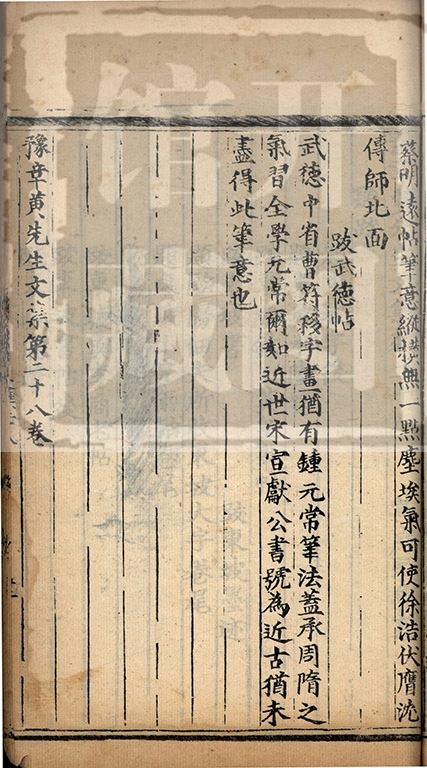 蔡明遠帖筆意縱横無一點塵埃氣可使徐浩伏膺沈
傳師北面
跋武德帖
武德中省曹符移字畫猶有鍾元常筆法蓋承周隋之
氣習全學元常爾如近世宋宣獻公書號為近古猶未
盡得此筆意也
豫章黄先生文集第二十八卷